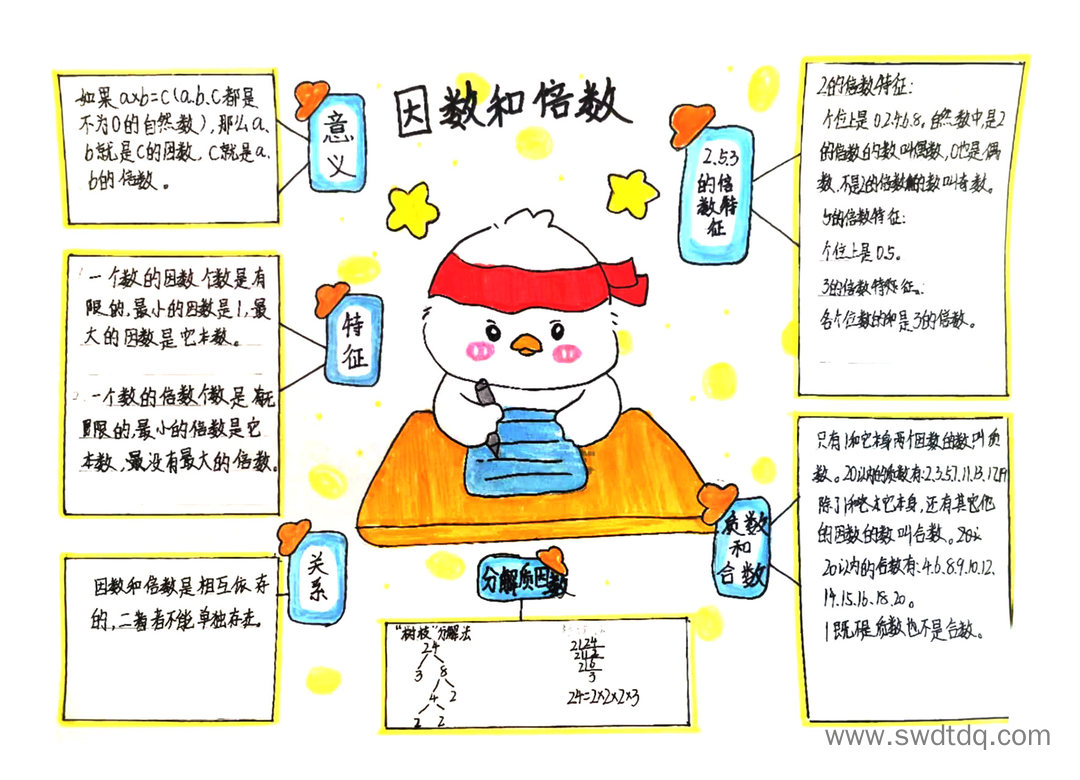 因数和倍数
意义
如果a×b=c(a.b.c都是
不为0的自然数),那么a、
b就是c的因数,c就是a、
b的倍数。
特征
一个数的因数个数是有
限的,最小的因数是1,最
大的因数是它本数。
2.一个数的倍数个数是无
限的,最小的倍数是它
本数,最没有最大的倍数。
关系
因数和倍数是相互依存
的,二者不能单独存在。
2.5.3
的倍
数特
征
2的倍数特征:
个位上是0.2.4.6.8。自然数中是2
的倍数的数叫偶数,0也是偶
数,不是2的倍数的数叫奇数。
5的倍数特征:
个位上是0.5。
3的倍数特征:
各个位数的和是3的倍数。
质数
和
合数
只有1和它本身两个因数的数叫质
数。20以内的质数有:2.3.5.7.11.13.17.19
除了1和它本身,还有其它他
的因数的数叫合数。
20以内的合数有:4.6.8.9.10.12.
14.15.16.18.20。
1既不是质数也不是合数。
分解质因数
"树枝"分解法
24
3 8
4 2
2 2
2|24
2|12
2|6
3
24=2×2×2×3
www.swdtdq.com